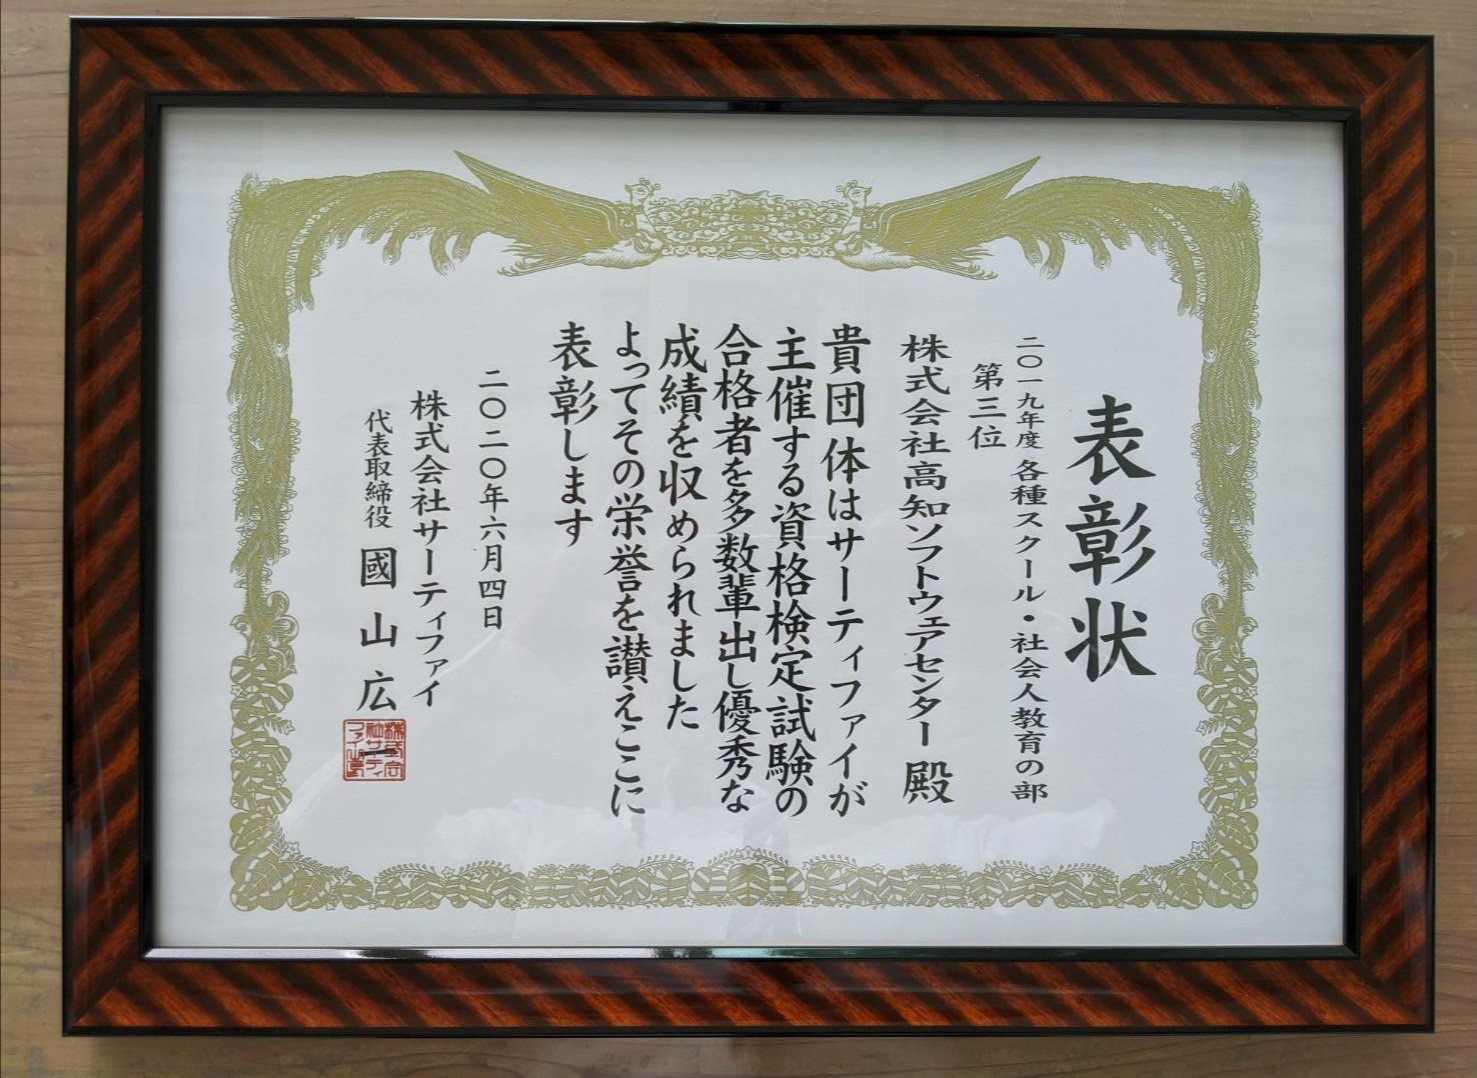 表彰状
二〇一九年度 各種スクール・社会人教育の部
第三位
株式会社高知ソフトウェアセンター 殿
貴団体はサーティファイが
主催する資格検定試験の
合格者を多数輩出し優秀な
成績を収められました
よってその栄誉を讃えここに
表彰します
二〇二〇年六月四日
株式会社サーティファイ
代表取締役 國山広